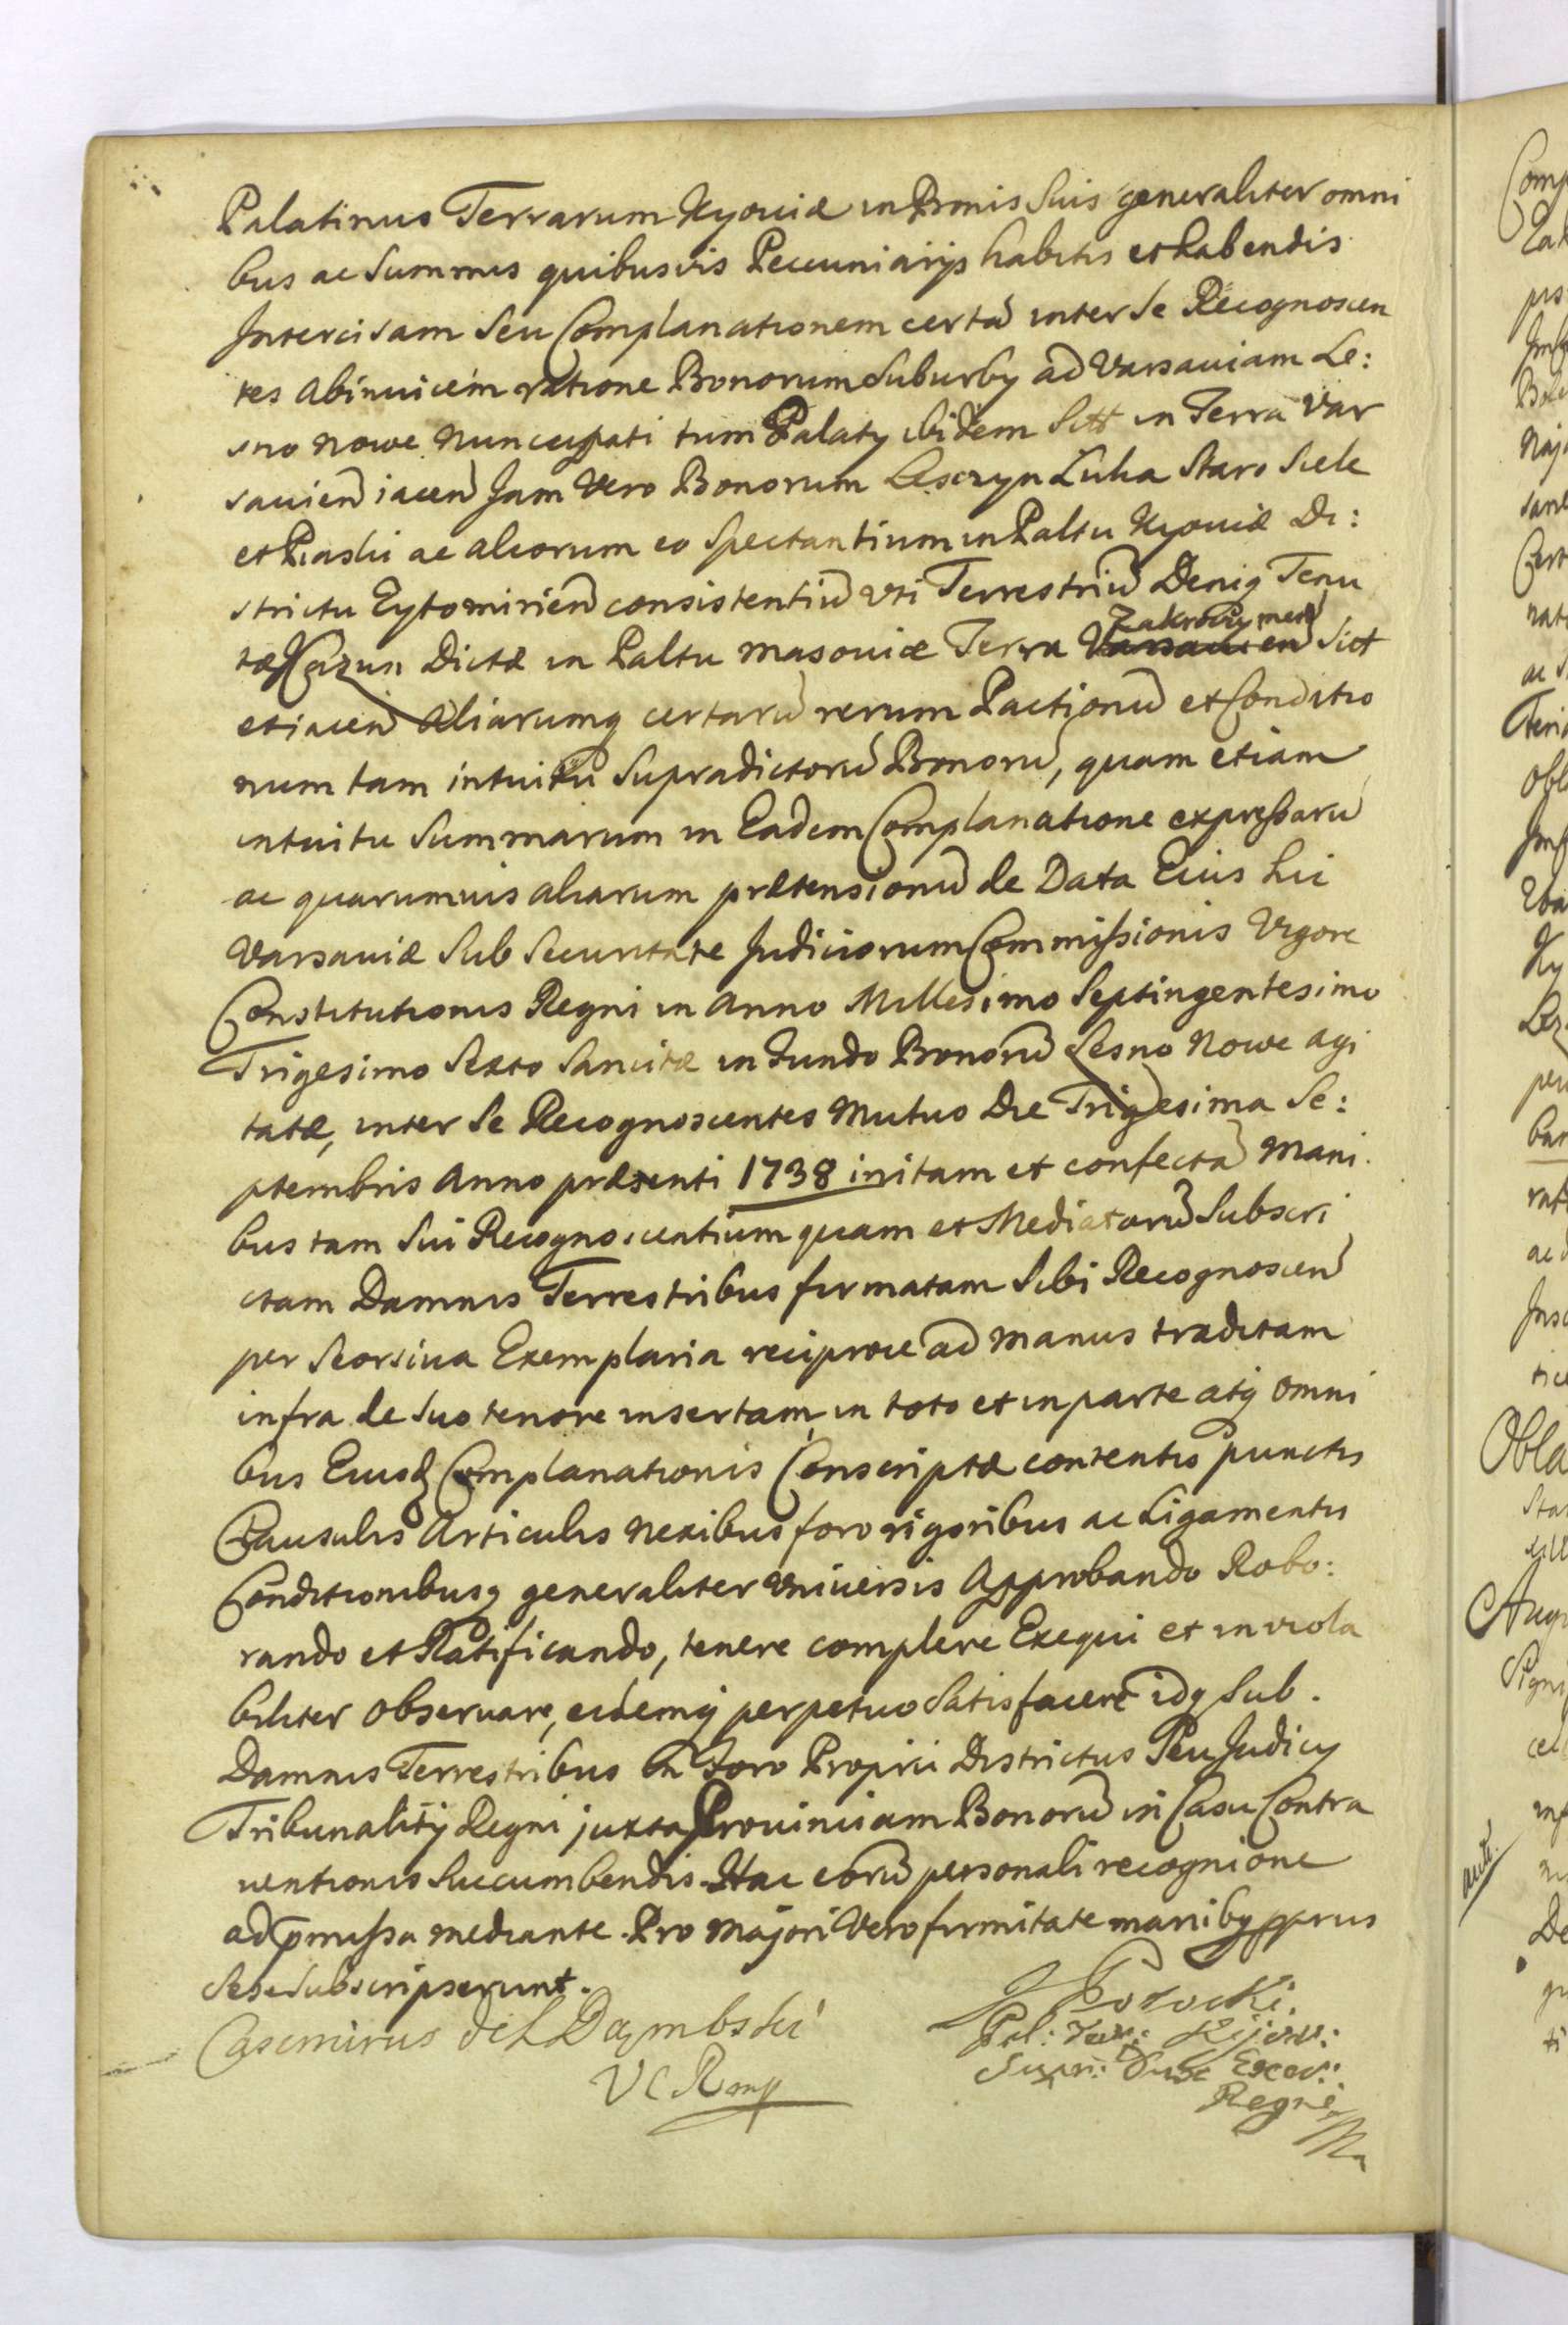 Palatinus Terrarum Kyouiæ in Bonis Suis generaliter omni
bus ac Summis quibusvis Pecuniarys habitis et habendis
Intercisam Seu Complanationem certã inter Se Recognoscen
tes abinuicem ratione Bonorum Suburby ad Varsauiam Le:
sno nowe nuncupati tum Palaty ibidem Sitt in Terra Var
sauieñ iaceñ Jam Vero Bonorum Lesczyn Luka Staro Siele
et Piaski ac aliorum eo Spectantium in Paltu Kyouiæ Di:
strictu Zytomirieñ consistentiũ Vti Terrestriũ Deniq Tenu
tæ Kazun Dictæ in Paltu Masouiæ Terra Varsauien Zakroczymeñ Sitt
et iaceñ Aliarumq certarũ rerum Pactionũ et Conditio
num tam intuitu Supradictorũ Bonorũ, quam etiam
intuitu Summarum in Eadem Complanatione expressarũ
ac quarumuis aliarum prætensionũ de Data Eius hic
Varsauiæ Sub Securitate Judiciorum Commissionis Vigore
Constitutionis Regni in Anno Millesimo Septingentesimo
Trigesimo Sexto Sancitæ in Fundo Bonorũ Lesno Nowe agi
tatæ, inter Se Recognoscentes Mutuo Die Trigesima Se:
ptembris Anno præsenti 1738 initam et confectã Mani
bus tam Sui Recognoscentium quam et Mediatorũ Subscri
ctam Damnis Terrestribus firmatam Sibi Recognosceñ
per Seorsiua Exemplaria reciproce ad manus traditam
infra de Suo tenore insertam in toto et in parte atq omni
bus Eiusd Complanationis Conscriptæ contentis punctis
Clausulis Articulis nexibus foro rigoribus ac Ligamentis
Conditionibusq generaliter Vniuersis Approbando Robo:
rando et Ratificando, tenere complere Exequi et inviola
biliter obseruare, eidemq perpetuo Satisfacere idq Sub
Damnis Terrestribus In Foro Proprii Districtus Seu Judicy
Tribunalitÿ Regni juxta Prouinciam Bonorũ in Casu Contra
uentionis Succumbendis. Hac eorũ personali recognione
ad pmissa mediante. Pro Majori Vero firmitate manibq pprus
Sese Subscripserunt.
Casimirus de L Dąmbski
V C R mp
J Potocki.
Pal: Terr: Kijow:
Supr: Dux Exer:
Regni